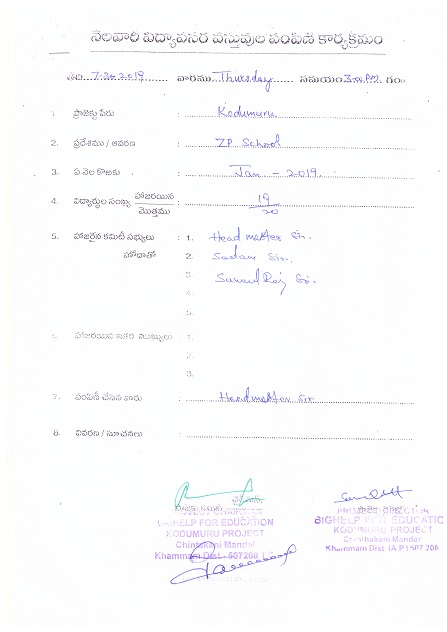 నెలవారి విద్యావసర వస్తువుల పంపిణి కార్యక్రమం
తేది 7-3-2019 వారము Thursday సమయం 3-00 P.M. గం
1. ప్రాజెక్టు పేరు : Kodumuru
2. ప్రదేశము / ఆవరణ : ZP School
3. ఏ నెల కొఱకు : Jan - 2019.
4. విద్యార్థుల సంఖ్య హాజరయిన / మొత్తము : 19 / 20
5. హాజరైన కమిటీ సభ్యులు : 1. Head master Sir.
హోదాతో 2. Sadan Sir.
3. Samuel Raj Sir.
4.
5.
6. హాజరయిన ఇతర ముఖ్యులు : 1.
2.
3.
7. పంపిణీ చేసిన వారు : Headmaster Sir
8. వివరణ / సూచనలు :
BIGHELP FOR EDUCATION
KODUMURU PROJECT
Chintakani Mandal
Khammam Dist. - 507208
BIGHELP FOR EDUCATION
KODUMURU PROJECT
Chinthakani Mandar
Khammam Dist (A.P) 507 208